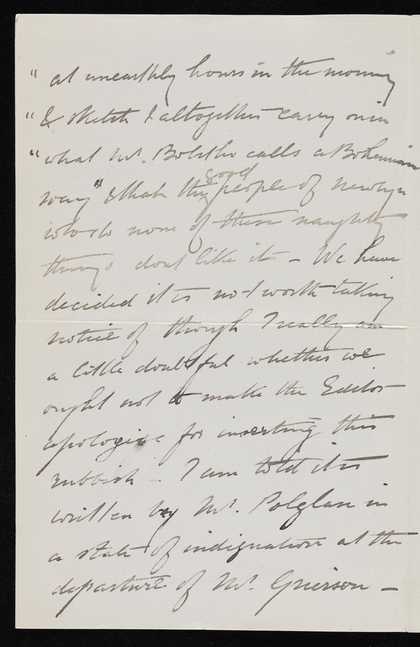 " at unearthly hours in the morning
" & sketch & altogether carry on in
" what Mr. Bolitho calls a Bohemian
way" & that the good people of Newlyn
who do none of these naughty
things dont like it – We have
decided it is not worth taking
notice of though I really am
a little doubtful whether we
ought not to make the Editor
apologize for inserting this
rubbish. I am told it is
written by Mr. Polglase in
a state of indignation at the
departure of Mr. Grierson –